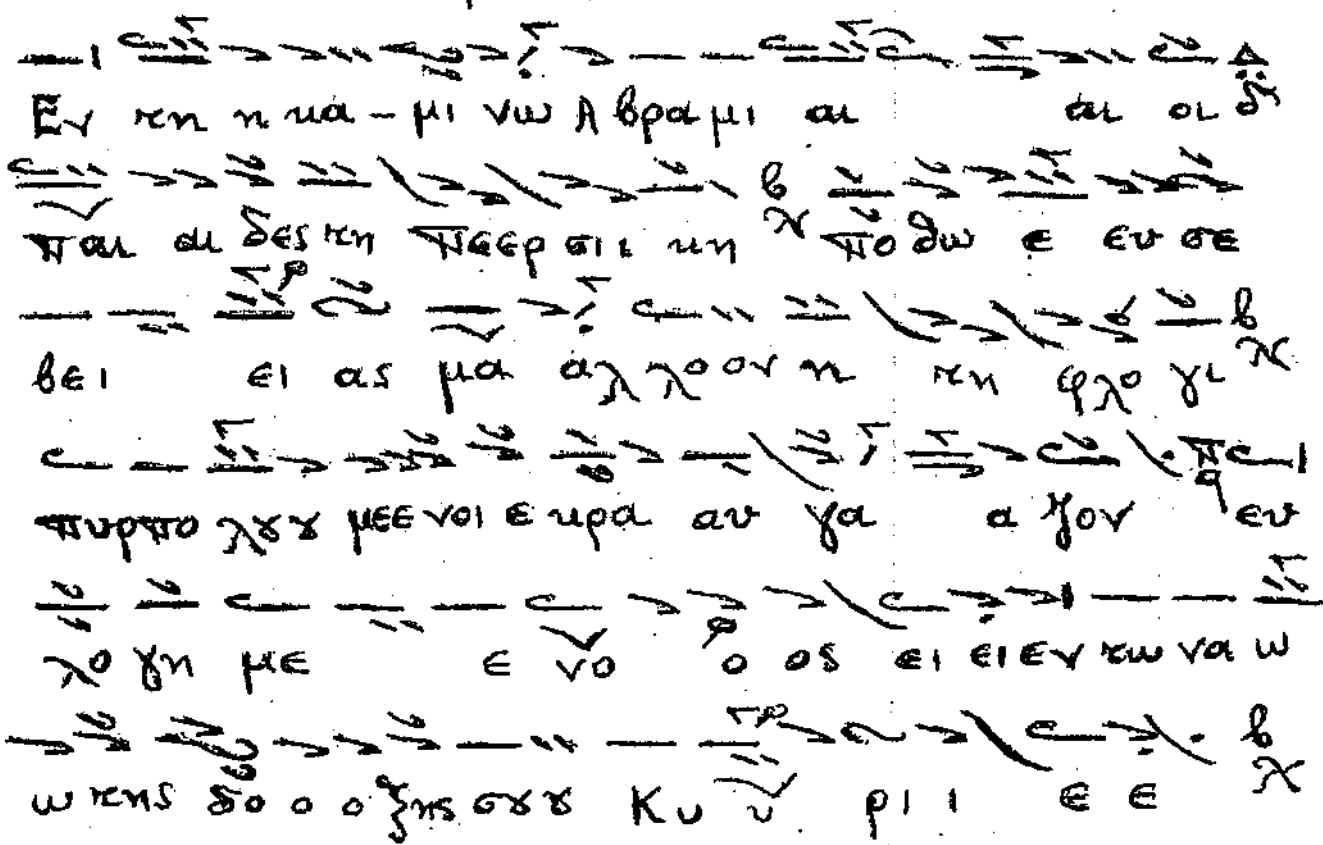 Εν τη η κα - μι νω Α βρα μι αι αι οι
παι αι δες τη πεερ σιι κη πο θω ε ευ σε
βει ει ας μα αλ λο ον η τη φλο γι
πυρπο λȣȣ μεε νοι ε κρα αυ γα α ζον ευ
λο γη με ε νο ο ος ει ει εν τω να ω
ω της δο ο ο ξης σȣȣ Κυ υ ρι ι ε ε